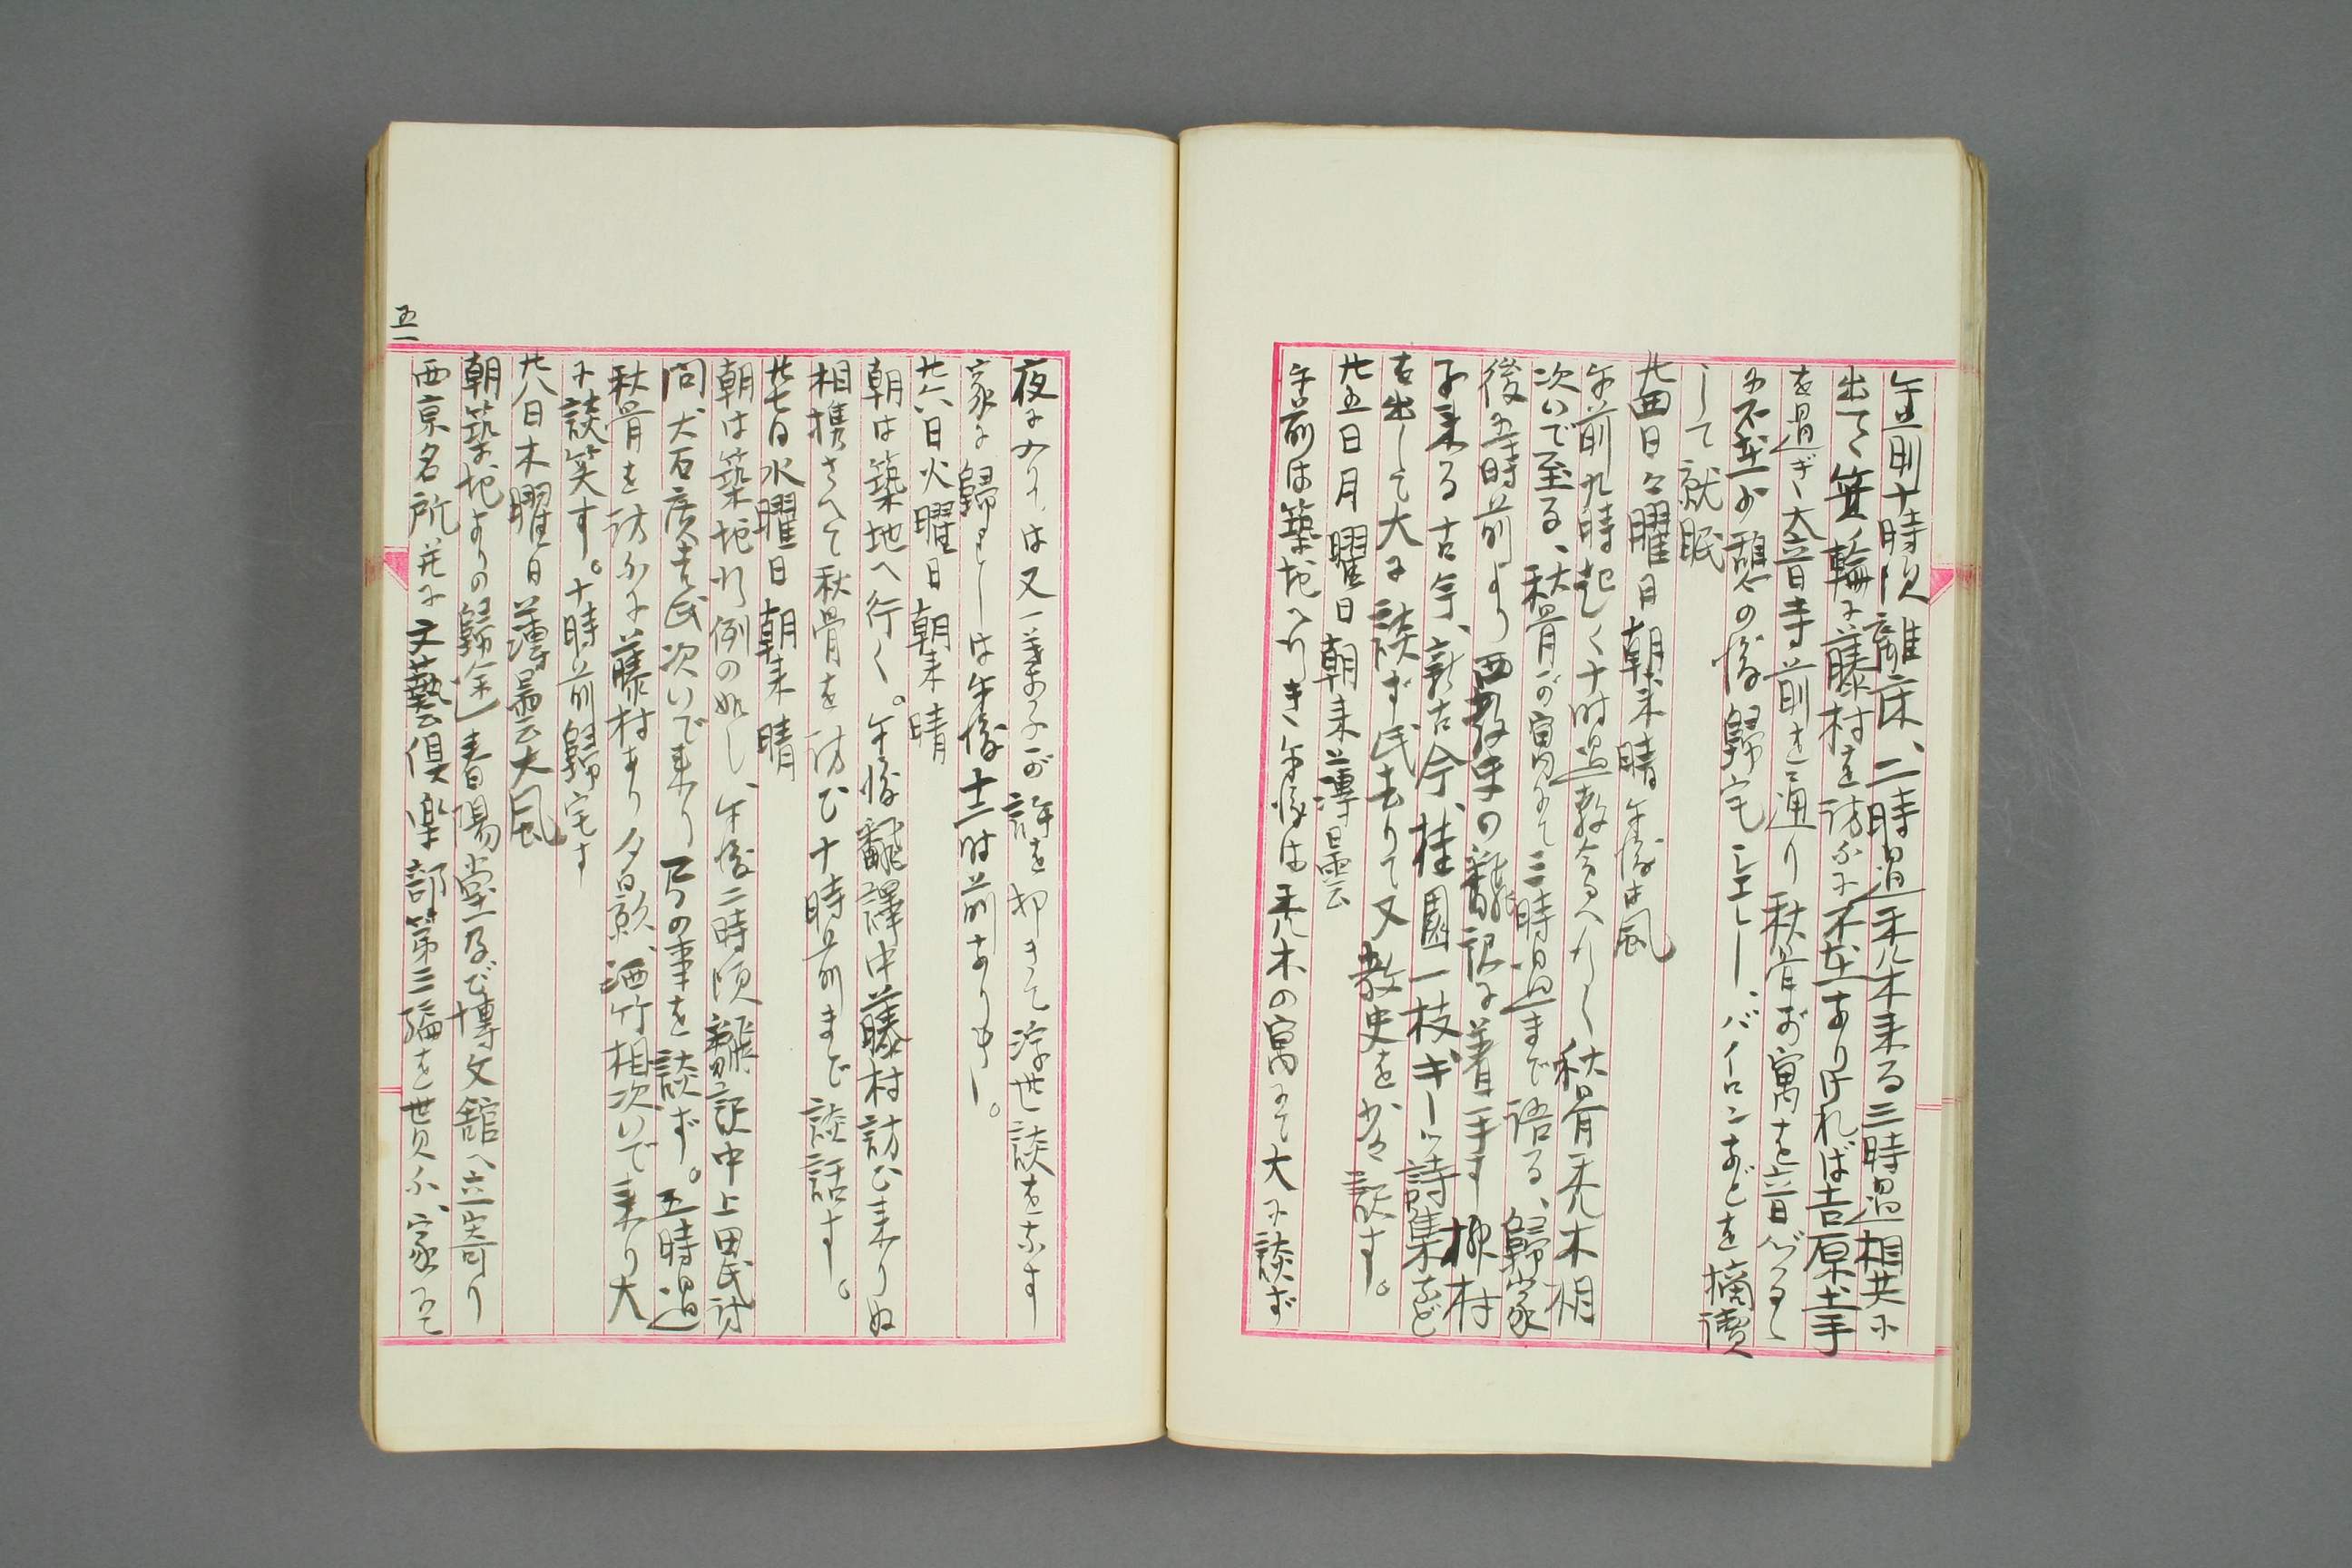 午前十時頃離床、二時過禿木来る三時過相共に
出でゝ箕ノ輪に藤村を訪ふに不在なりければ吉原土手
を過ぎ大音寺前を通り秋骨が寓を音づるゝ
に不在小憩の後歸宅シエレー、バイロンなどを摘讀
して就眠
廿四日日曜日 朝来晴午後は風
午前九時起く十時過教会へ行く秋骨禿木相
次いで至る、秋骨が寓にて三時過まで語る、歸家
後五時前より西教史の飜訳に着手す 柳村
子来る古今、新古今、桂園一枝ギーツ詩集など
を出して大に談ず氏去りて又教史を少々訳す。
廿五日月曜日 朝来薄曇
午前は築地へ行き午後は禿木の寓にて大に談ず
夜に入りては又一葉子が許を叩きて浮世談をなす
家に歸りしは午後十二時前なりき。
廿六日火曜日 朝来晴
朝は築地へ行く。午後飜譯中藤村訪ひ来りぬ
相携さへて秋骨を訪ひ十時前まで談話す。
廿七日水曜日 朝来晴
朝は築地行例の如し、午後二時頃飜訳中上田氏訪
問大石廣吉氏次いで来り の事を談ず。五時過
秋骨を訪ふに藤村あり夕影、酒竹相次いで来り大
に談笑す。十時前歸宅す
廿八日木曜日 薄曇大風
朝築地よりの歸途春陽堂及び博文館へ立寄り
西京名所并に文藝倶楽部第三編を貰ふ、家にて
五一